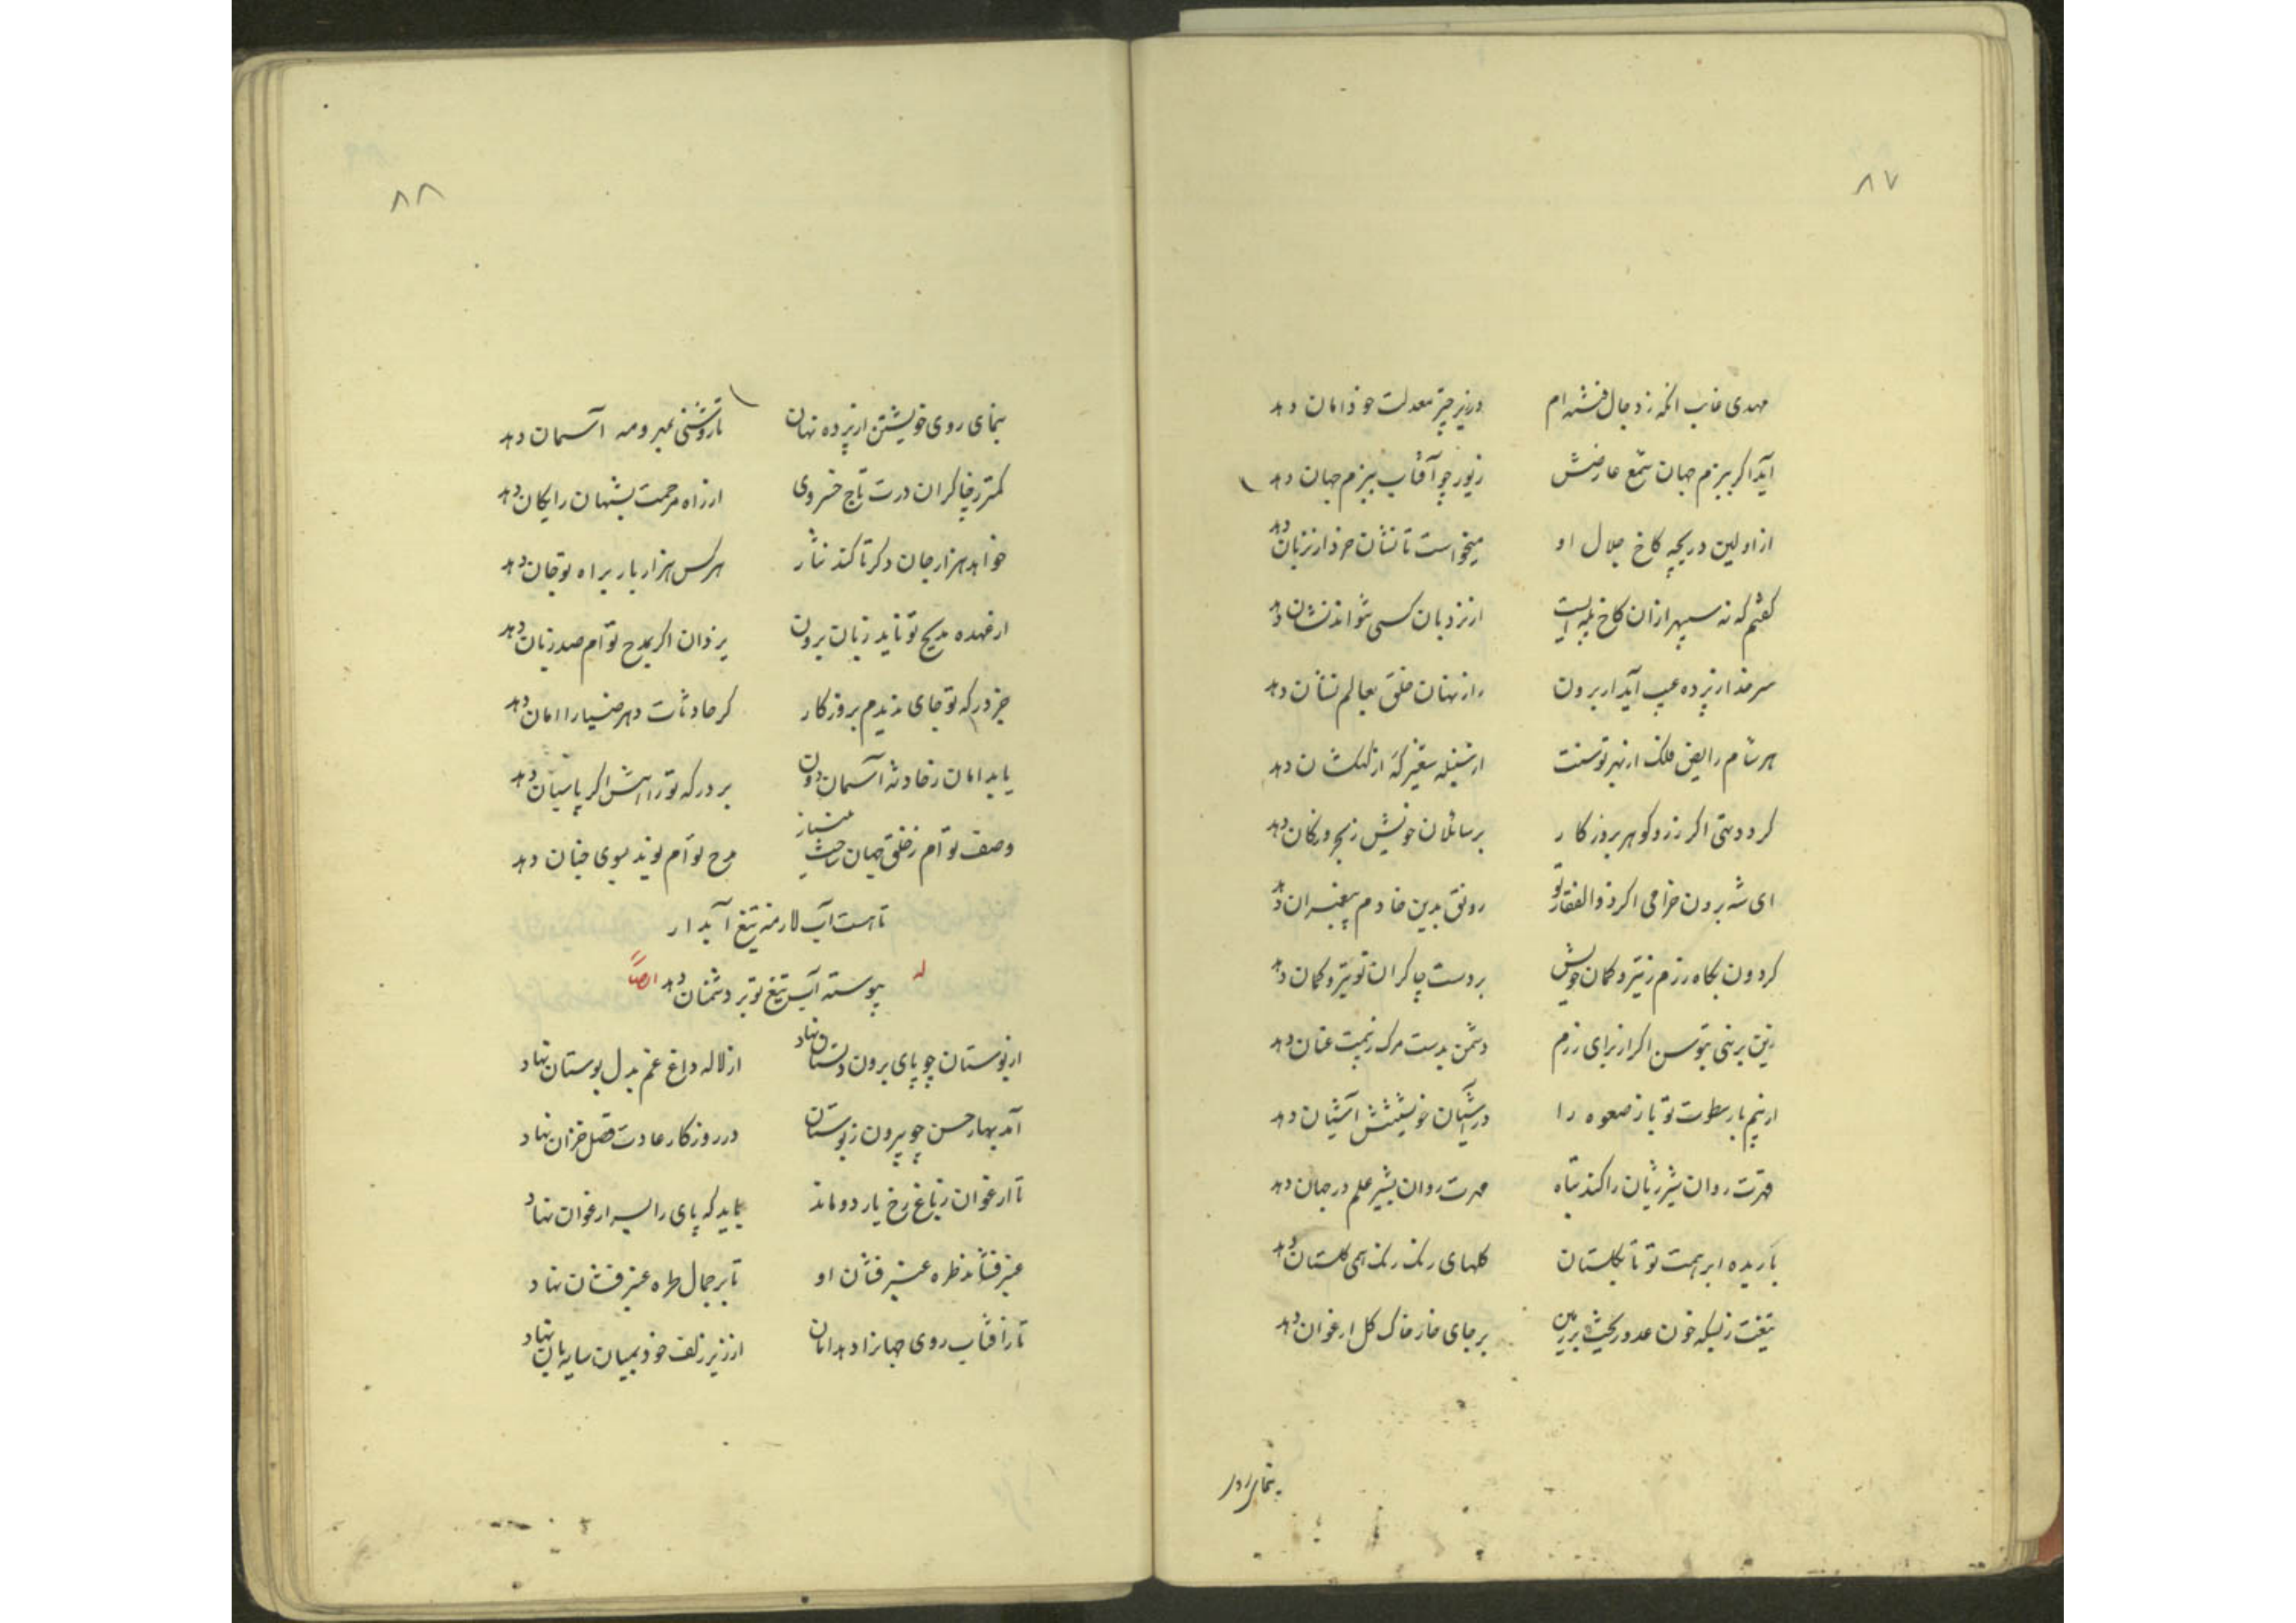 ۸۷
مهدی غایب آنکه ز دجال فتنه ام در زیر چتر معدلت خود امان دهد
آید اگر ببزم جهان شمع عارضش زیور چو آفتاب ببزم جهان دهد
از اولین دریچه کاخ جلال او میخواست تا نشان خرد از نردبان دهد
گفتم که نه سپهر از آن کاخ پله ایست از نردبان کسی نتواند نشان دهد
سر خدا ز پرده غیب آید ار برون راز نهان خلق بعالم نشان دهد
هر شام رایض فلک از بهر توسنت از سنبله شعیر که از کهکشان دهد
گر دو دستی اگر زر و گوهر بروزگار بر سائلان خویش ز بحر و ز کان دهد
ای شه برون خرامی اگر ذوالفقار تو رونق بدین خادم پیغمبران دهد
گردون بگاه رزم ز تیر و کمان خویش بر دست چاکران تو تیر و کمان دهد
زین بر نهی بتوسن اگر از برای رزم دشمن بدست مرک ز بیمت عنان دهد
از بیم باز سطوت تو باز صعوه را در آشیان خویشتنش آشیان دهد
قهرت روان شیر ژیان را کند تباه مهرت روان بشیر علم در جهان دهد
باریده ابر همت تو تا بگلستان گلهای رنگ رنگ همی گلستان دهد
تیغت ز بسکه خون عدو ریخت بر زمین بر جای خار خاک گل ارغوان دهد
بنمای روی
۸۸
بنمای روی خویشتن از پرده نهان تا روشنی بمهر و مه آسمان دهد
کمتر ز چاکران درت تاج خسروی از راه مرحمت بشهان رایگان دهد
خواهد هزار جان دگر تا کند نثار هر کس هزار بار براه تو جان دهد
از عهده مدیح تو ناید زبان برون یزدان اگر بمدح توام صد زبان دهد
جز درگه تو جای ندیدم بروزگار کز حادثات دهر ضیا را امان دهد
یابد امان ز حادثه آسمان دون بر درگه تو راهش اگر پاسبان دهد
وصف توام ز خلق جهان ساخت بی نیاز مدح توام نوید بسوی جنان دهد
تا هست آب لازمه تیغ آبدار
پیوسته آب تیغ تو بر دشمنان دهد
وله ایضاً
از بوستان چو پای برون دلستان نهاد از لاله داغ غم بدل بوستان نهاد
آمد بهار حسن چو بیرون ز بوستان در روزگار عادت فصل خزان نهاد
تا ارغوان ز باغ رخ یار دو ماند باید که پای را بسر ارغوان نهاد
عنبر فشاند طره عنبر فشان او تا بر جمال طره عنبر فشان نهاد
تا ز آفتاب روی جهانرا دهد امان از زیر زلف خود بمیان سایه بان نهاد